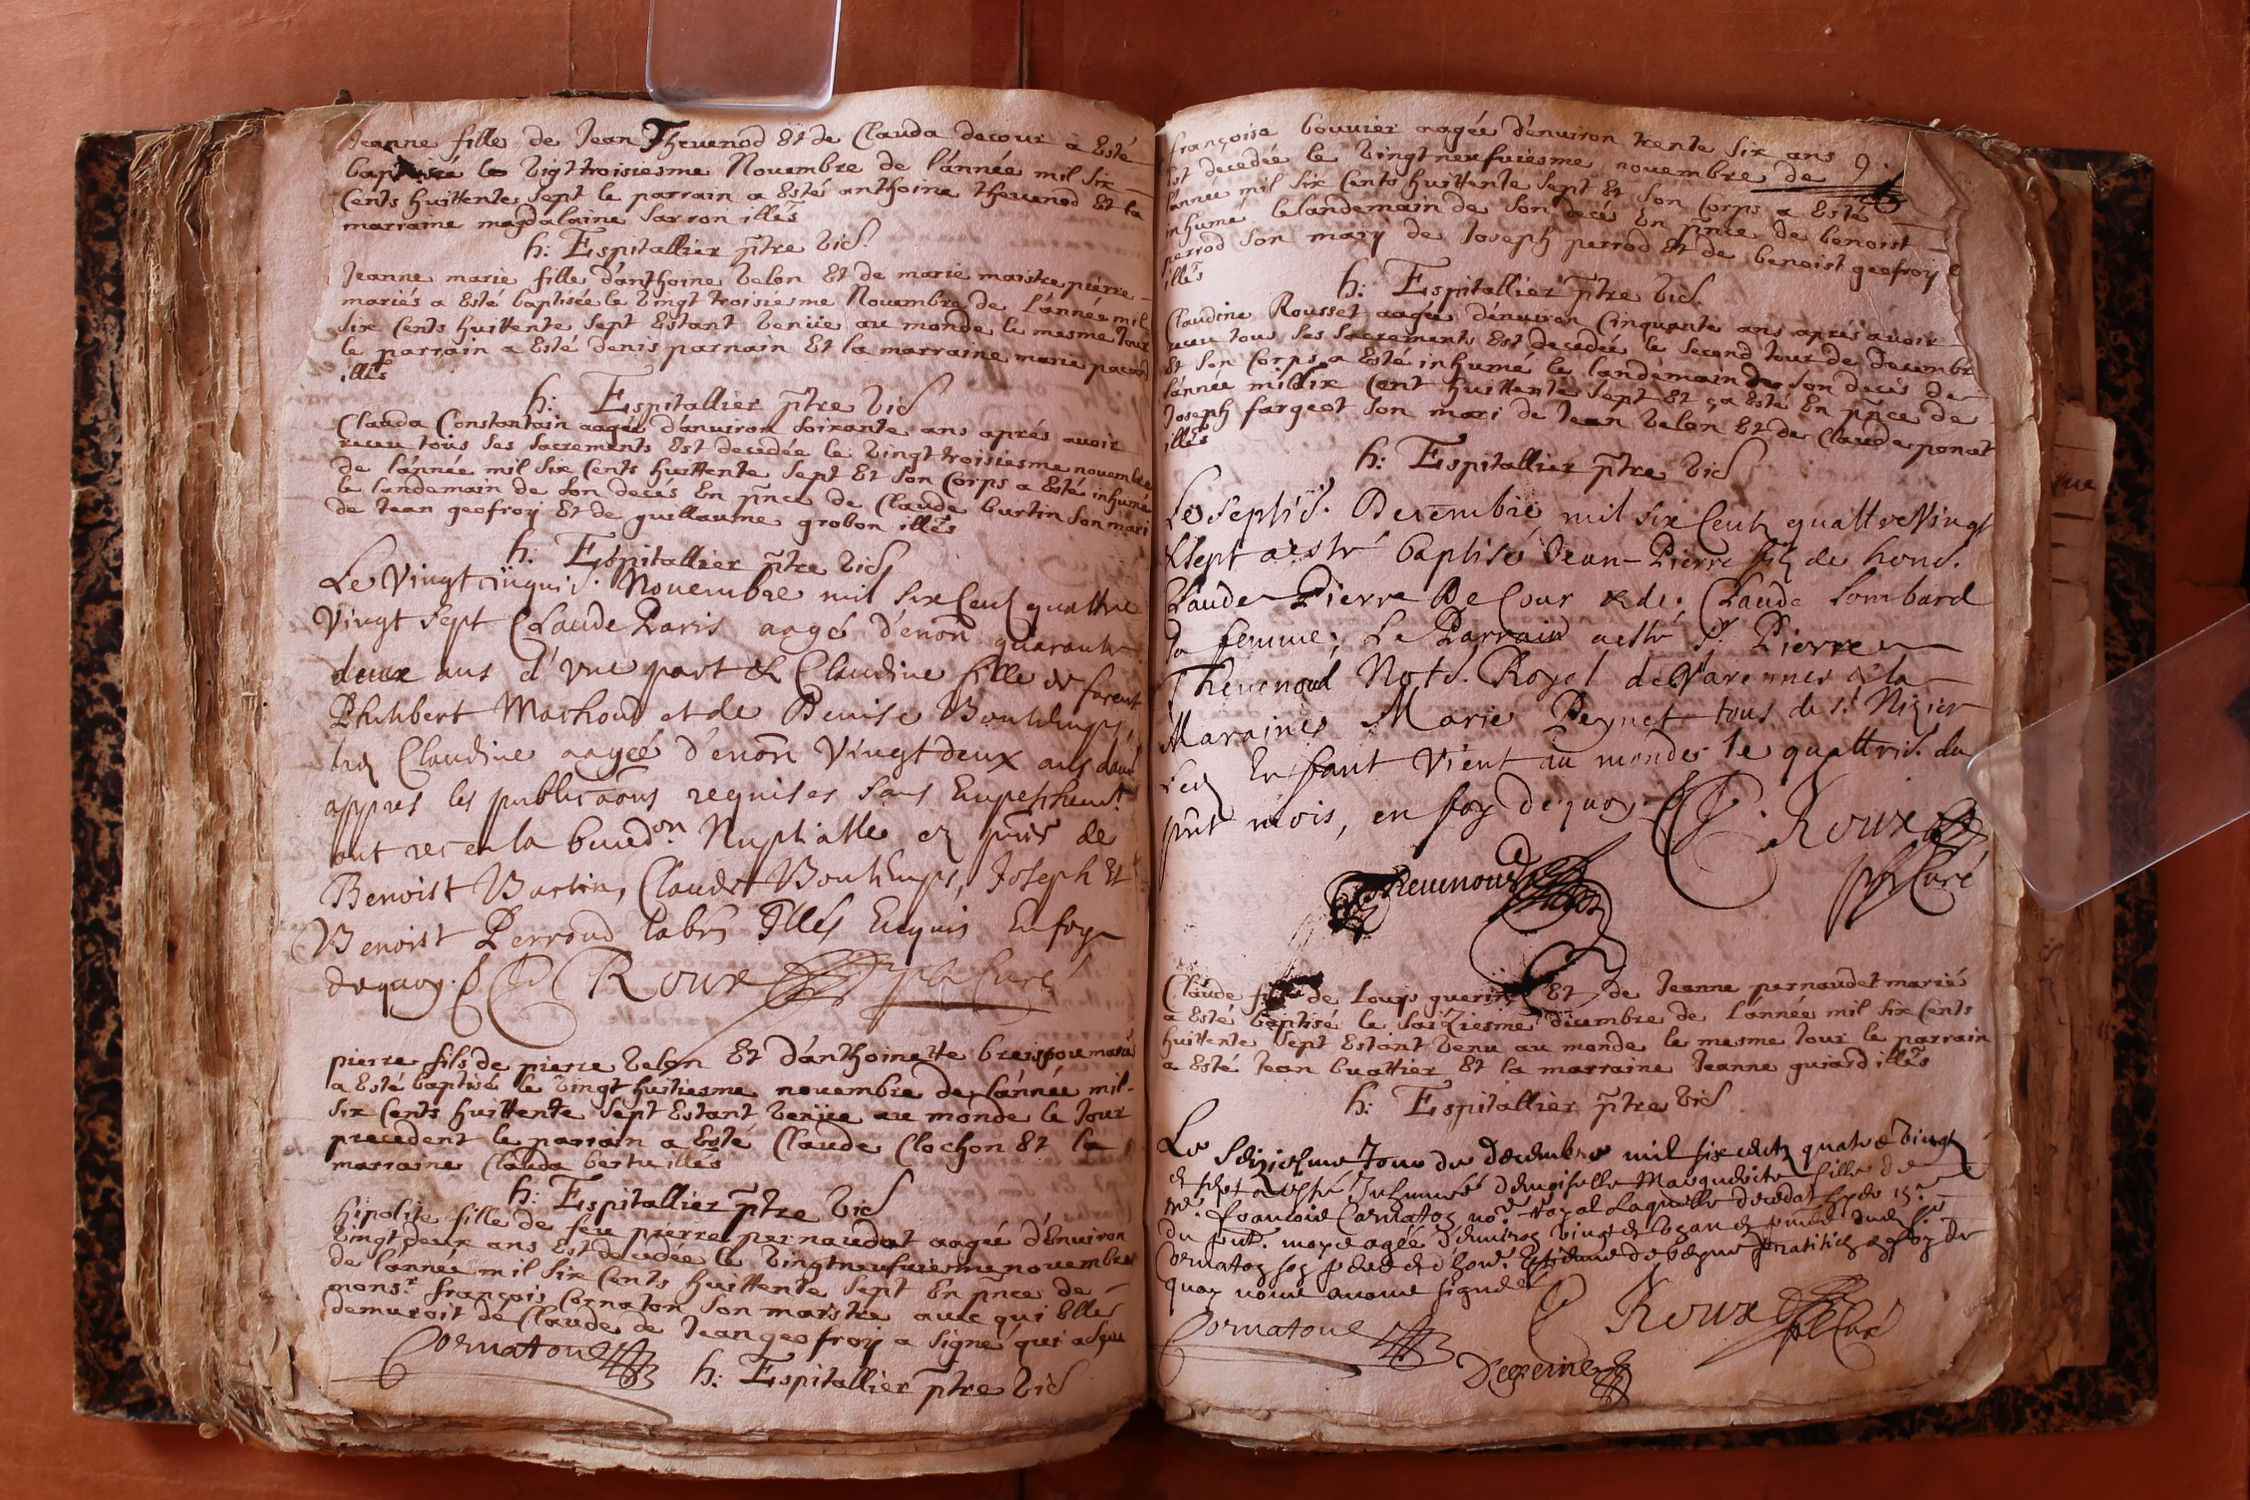 Jeanne fille de Jean Thevenod Et de Clauda decour a Esté
baptisée le vigt troisiesme Novembre de l'année mil six
Cents huittente sept le parrain a Esté anthoine thevenod Et la
marraine magdalaine sarron illés
h: Espitallier pñtre vic.
Jeanne marie fille d'anthoine velon Et de marie maistrepierre
mariés a Esté baptisée le vingt troisiesme Novembre de l'année mil
six Cents huittente sept Estant venüe au monde le mesme Jour
le parrain a Esté denis parnain Et la marraine marie
illés
h: Espitallier pñtre vic
Clauda Constantain aagée d'anviron soixante ans aprés avoir
receu tous ses sacrements Est decedée le vingt troisiesme novembre
de l'année mil six Cents huittente sept Et son Corps a Esté inhumé
le landemain de son decés En pñce de Claude burtin son mari
de Jean geofroy Et de guillaume grobon illés
h: Espitallier pñtre vic
Le Vingt cinquie. Novembre mil six Cent quattre
Vingt sept Claude Paris aagé d'enon quarante
deux ans d'Vne part & Claudine fille de
Philibert Machoud et de Denise Bontemps,
lad Claudine aagée d'enon Vingt deux ans
appres les publicaons requises sans Empeschemt
ont receu la bened.on Nuptialle en pñce de
Benoist Bartin, Claude Bontemps, Joseph Et
Benoist Perroud labrs Illés Enquis En foy
dequoy. Roux Curé
pierre fils de pierre velon Et d'anthoinette mariés
a Esté baptisé le vingt huitiesme novembre de l'année mil
six Cents huittente sept Estant venüe au monde le Jour
precedent le parrain a Esté Claude Clochon Et la
marraine Clauda illés
h: Espitallier pñtre vic
hipolite fille de feu pierre pernaudat aagée d'Environ
vingt deux ans Est decedée le vingt neufviesme novembre
de l'année mil six Cents huittente sept En pñce de
mons.r françois Cornaton son maistre avec qui Elle
demuroit de Claude de Jean geofroy a signé qui a sçeu
Cornaton
h: Espitallier pñtre vic
françoise bouvier aagée d'environ trente six ans 9.
Est decedée le vingt neufviesme novembre de
l'année mil six Cents huittente sept Et son Corps a Esté
inhumé le landemain de son decés En pñce de benoist
perrod son mary de Joseph perrod Et de benoist geofroy
illés
h: Espitallier pñtre vic
Claudine Rousset aagée d'environ Cinquante ans aprés avoir
receu tous ses sacrements Est decedée le second Jour de decembre
Et son Corps a Esté inhumé le landemain de son decés de
l'année mil six Cent huittente sept Et ça Esté En pñce de
Joseph fargeot son mari de Jean velon Et de Claude ponat
illés
h: Espitallier pñtre vic
Le septie. Decembre mil six Cent quattre Vingt
& sept a esté baptisé Jean-Pierre fils de hone.
Claude Pierre De Cour & de Claude Lombard
sa femme; Le Parrain a esté sr. Pierre
Thevenoud Note. Royal de Varennes & la
Maraine Marie Peynet tous de st. Nizier
Led Enfant Vient au monde le quattrie. du
pñt mois, en foy dequoy. Roux
Thevenoud Curé
Claude de Loups guerin Et de Jeanne pernaudet mariés
a Esté baptisé le saiziesme decembre de l'année mil six Cents
huittente sept Estant venu au monde le mesme Jour le parrain
a Esté Jean buattier Et la marraine Jeanne guiard illés
h: Espitallier pñtre vic
Le seiziesme Jour de decembre mil six cents quatre vingt
et sept a esté Inhumée demoiselle Marguerite fille de
me. francois Cornaton nore. royal Laquelle decedat hyer 15e
du pnt. moys agée d'environ vingt
Cornaton son pere et d'hone. Estienne foy de
quoy nous avons signé
Cornaton
Roux
Curé